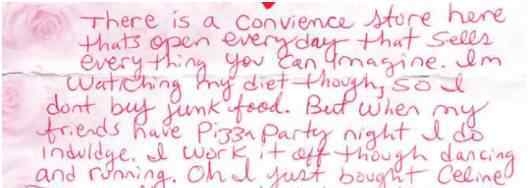 There is a convience store here
thats open everyday that sells
everything you can imagine. Im
watching my diet though, so I
dont buy junk food. But when my
friends have Pizza Party night I do
induldge. I work it off though dancing
and running. Oh I just bought Celine